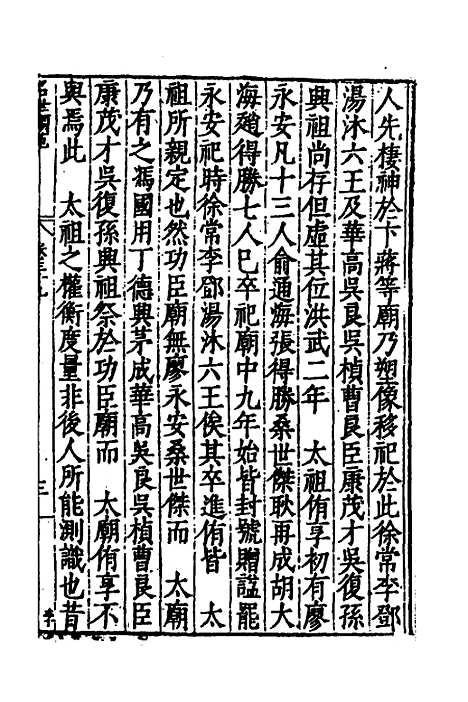 人先棲神於卞蔣等廟乃塑像移祀於此徐常李鄧
湯沐六王及華高吳良吳楨曹良臣康茂才吳復孫
興祖尚存但虛其位洪武二年　太祖侑享初有廖
永安凡十三人俞通海張得勝桑世傑耿再成胡大
海趙得勝七人巳卒祀廟中九年始皆封號贈諡罷
永安祀時徐常李鄧湯沐六王俟其卒進侑皆　太
祖所親定也然功臣廟無廖永安桑世傑而　太廟
乃有之馮國用丁德興茅成華高吳良吳楨曹良臣
康茂才吳復孫興祖祭於功臣廟而　太廟侑享不
與焉此　太祖之權衡度量非後人所能測識也昔
三